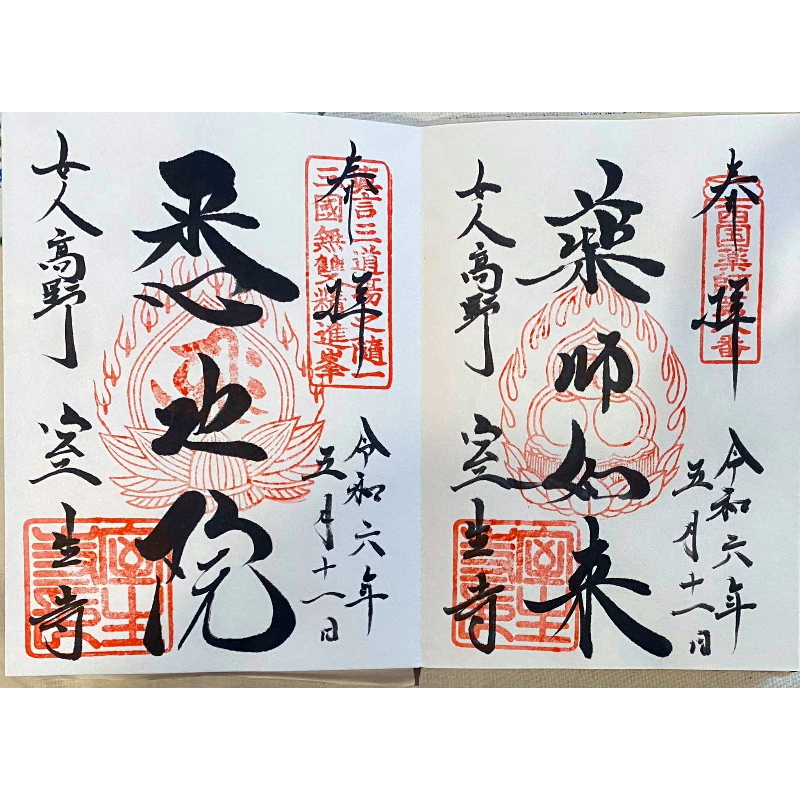 奉拝
西国薬師第八番
令和六年
五月十一日
薬師如来
女人高野
室生寺
奉拝
真言三道場之随一
三國無雙精進峯
令和六年
五月十一日
悉地院
女人高野
室生寺